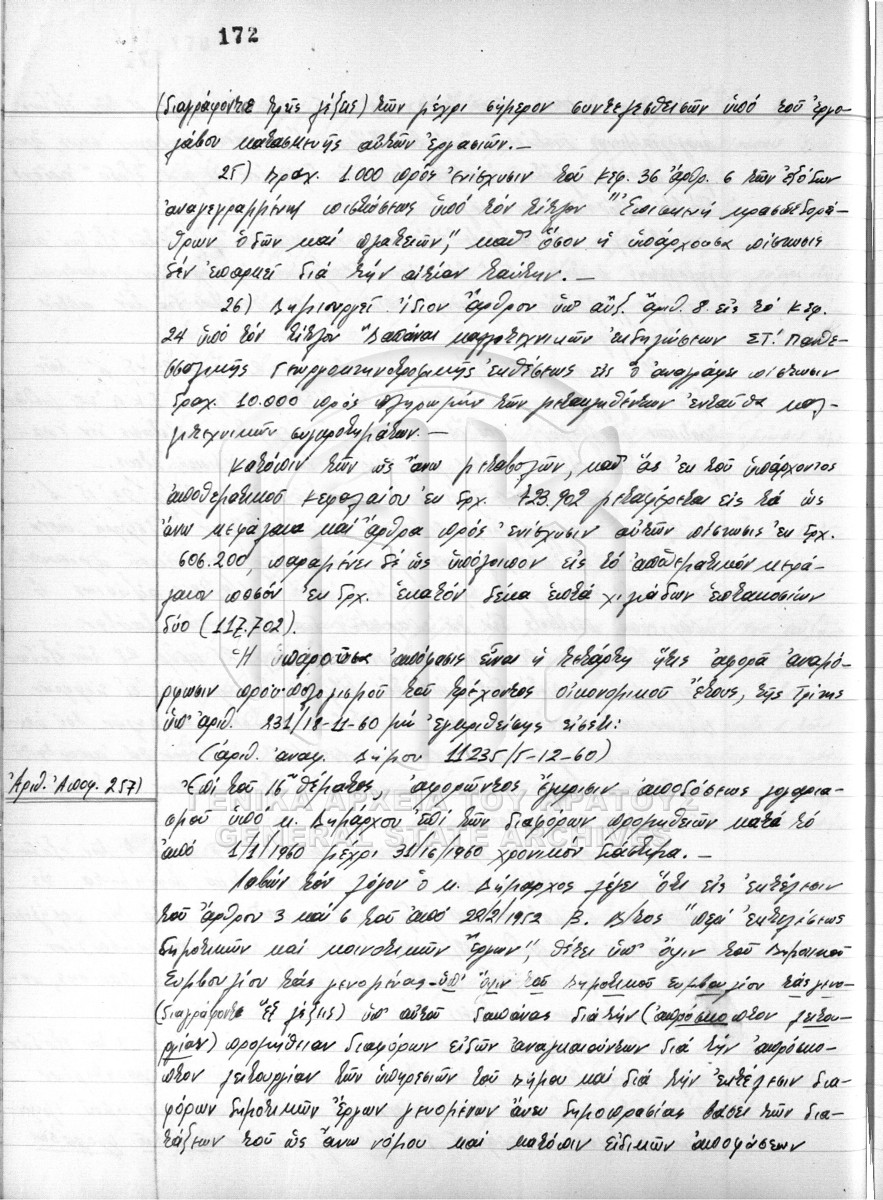 172
(διαγράφονται τρεῖς λέξεις) τῶν μέχρι σήμερον συντελεσθεισῶν ὑπό τοῦ ἐργο-
λάβου κατασκευῆς αὐτῶν ἐργασιῶν.—
25) Δραχ. 1.000 πρός ἐνίσχυσιν τοῦ Κεφ. 36 ἄρθρ. 6 τῶν ἐξόδων
ἀναγεγραμμένης πιστώσεως ὑπό τόν τίτλον "Ἐπισκευή κρασπεδορεί-
θρων ὁδῶν καί πλατειῶν", καθ' ὅσον ἡ ὑπάρχουσα πίστωσις
δέν ἐπαρκεῖ διά τήν αἰτίαν ταύτην.—
26) Δημιουργεῖ ἴδιον ἄρθρον ὑπ' αὔξ. ἀριθ. 8 εἰς τό Κεφ.
24 ὑπό τόν τίτλον "Δαπάναι καλλιτεχνικῶν ἐκδηλώσεων ΣΤ! Πανθε-
σσαλικῆς Γεωργοκτηνοτροφικῆς ἐκθέσεως εἰς ὅ ἀναγράφει πίστωσιν
δραχ. 10.000 πρός πληρωμήν τῶν μετακληθέντων ἐνταῦθα καλ-
λιτεχνικῶν συγκροτημάτων.—
Κατόπιν τῶν ὡς ἄνω μεταβολῶν, καθ' ἅς ἐκ τοῦ ὑπάρχοντος
ἀποθεματικοῦ κεφαλαίου ἐκ δρχ. 723.902 μεταφέρεται εἰς τά ὡς
ἄνω κεφάλαια καί ἄρθρα πρός ἐνίσχυσιν αὐτῶν πίστωσις ἐκ δρχ.
606.200, παραμένει δέ ὡς ὑπόλοιπον εἰς τό ἀποθεματικόν κεφά-
λαιον ποσόν ἐκ δρχ. ἑκατόν δέκα ἑπτά χιλιάδων ἑπτακοσίων
δύο (117.702).
Ἡ παροῦσα ἀπόφασις εἶναι ἡ τετάρτη ἥτις ἀφορᾶ ἀναμό-
ρφωσιν προϋπολογισμοῦ τοῦ τρέχοντος οἰκονομικοῦ ἔτους, τῆς τρίτης
ὑπ' ἀριθ. 231/18-11-60 μή ἐγκριθείσης εἰσέτι:
(ἀριθ. ἀναφ. Δήμου 11235/5-12-60)
Ἀριθ. Ἀποφ. 257)
Ἐπί τοῦ 16ου θέματος, ἀφορῶντος ἔγκρισιν ἀποδόσεως λογαρια-
σμοῦ ὑπό κ. Δημάρχου ἐπί τῶν διαφόρων προμηθειῶν κατά τό
ἀπό 1/1/1960 μέχρι 31/6/1960 χρονικόν διάστημα.—
Λαβών τόν λόγον ὁ κ. Δήμαρχος λέγει ὅτι εἰς ἐκτέλεσιν
τοῦ ἄρθρου 3 καί 6 τοῦ ἀπό 22/2/1952 Β. Δ/τος "περί ἐκτελέσεως
δημοτικῶν καί κοινοτικῶν ἔργων", θέτει ὑπ' ὄψιν τοῦ Δημοτικοῦ
Συμβουλίου τάς γενομένας ὑπ' ὄψιν τοῦ Δημοτικοῦ Συμβουλίου τάς γενο-
(διαγράφονται ἕξ λέξεις) ὑπ' αὐτοῦ δαπάνας διά τήν (ἀπρόσκοπτον λειτου-
ργίαν) προμήθειαν διαφόρων εἰδῶν ἀναγκαιούντων διά τήν ἀπρόσκο-
πτον λειτουργίαν τῶν ὑπηρεσιῶν τοῦ Δήμου καί διά τήν ἐκτέλεσιν δια-
φόρων δημοτικῶν ἔργων γενομένων ἄνευ δημοπρασίας βάσει τῶν δια-
τάξεων τοῦ ὡς ἄνω νόμου καί κατόπιν εἰδικῶν ἀποφάσεων
ΓΕΝΙΚΑ ΑΡΧΕΙΑ ΤΟΥ ΚΡΑΤΟΥΣ
GENERAL STATE ARCHIVES